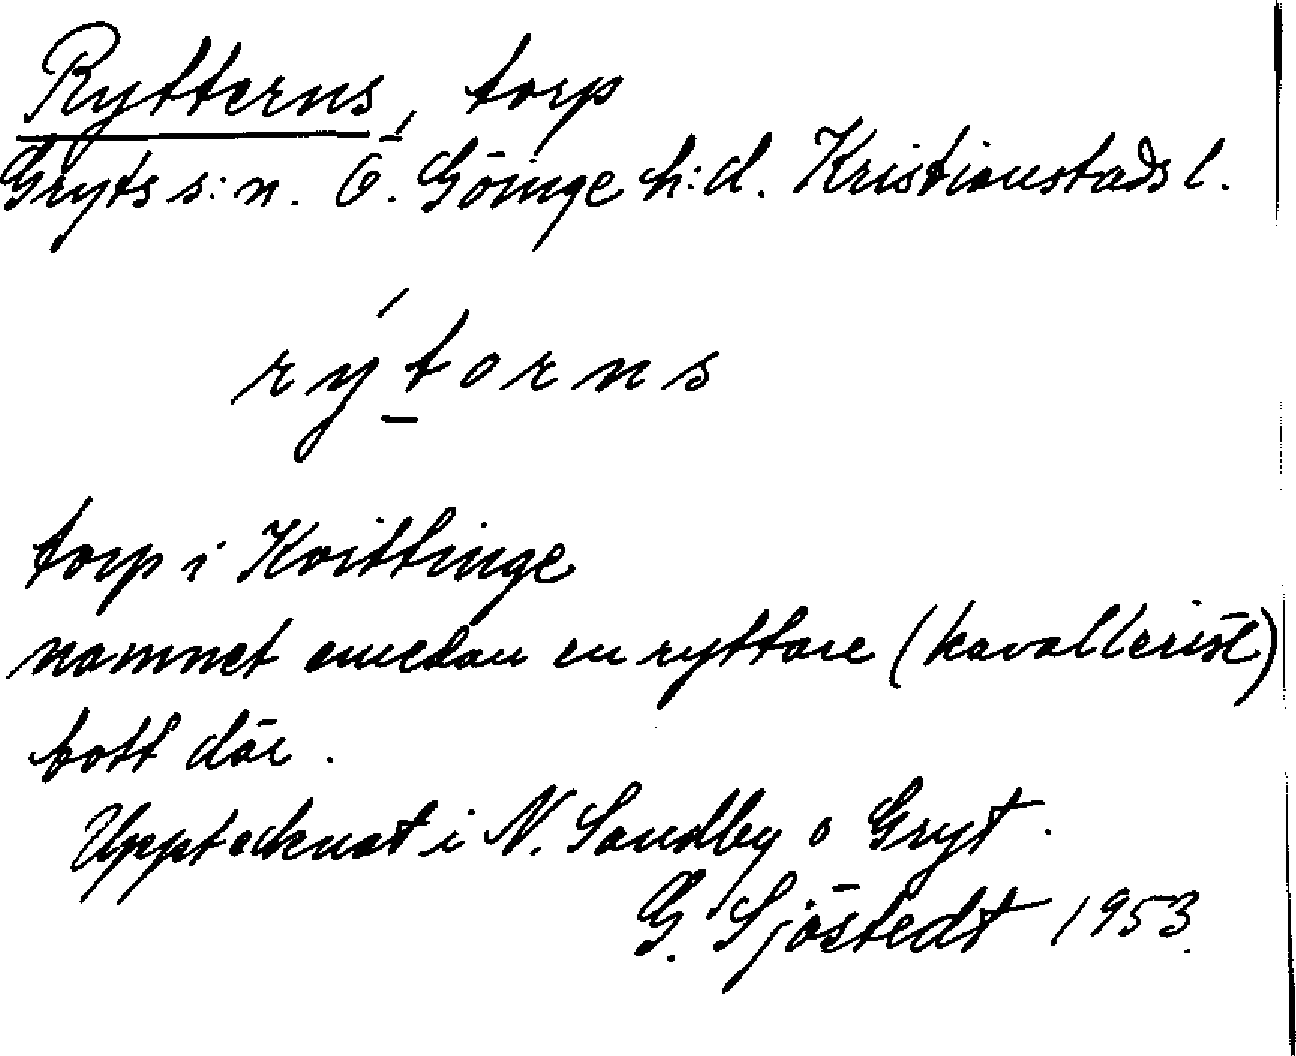 Rytterns, torp
Gryts s:n. Ö. Göinge h:d. Kristianstads l.
rýtorns
torp i Kvittinge
namnet emedan en ryttare (kavallerist)
bott där.
Upptecknat i N. Sandby o Gryt.
G. Sjöstedt 1953.